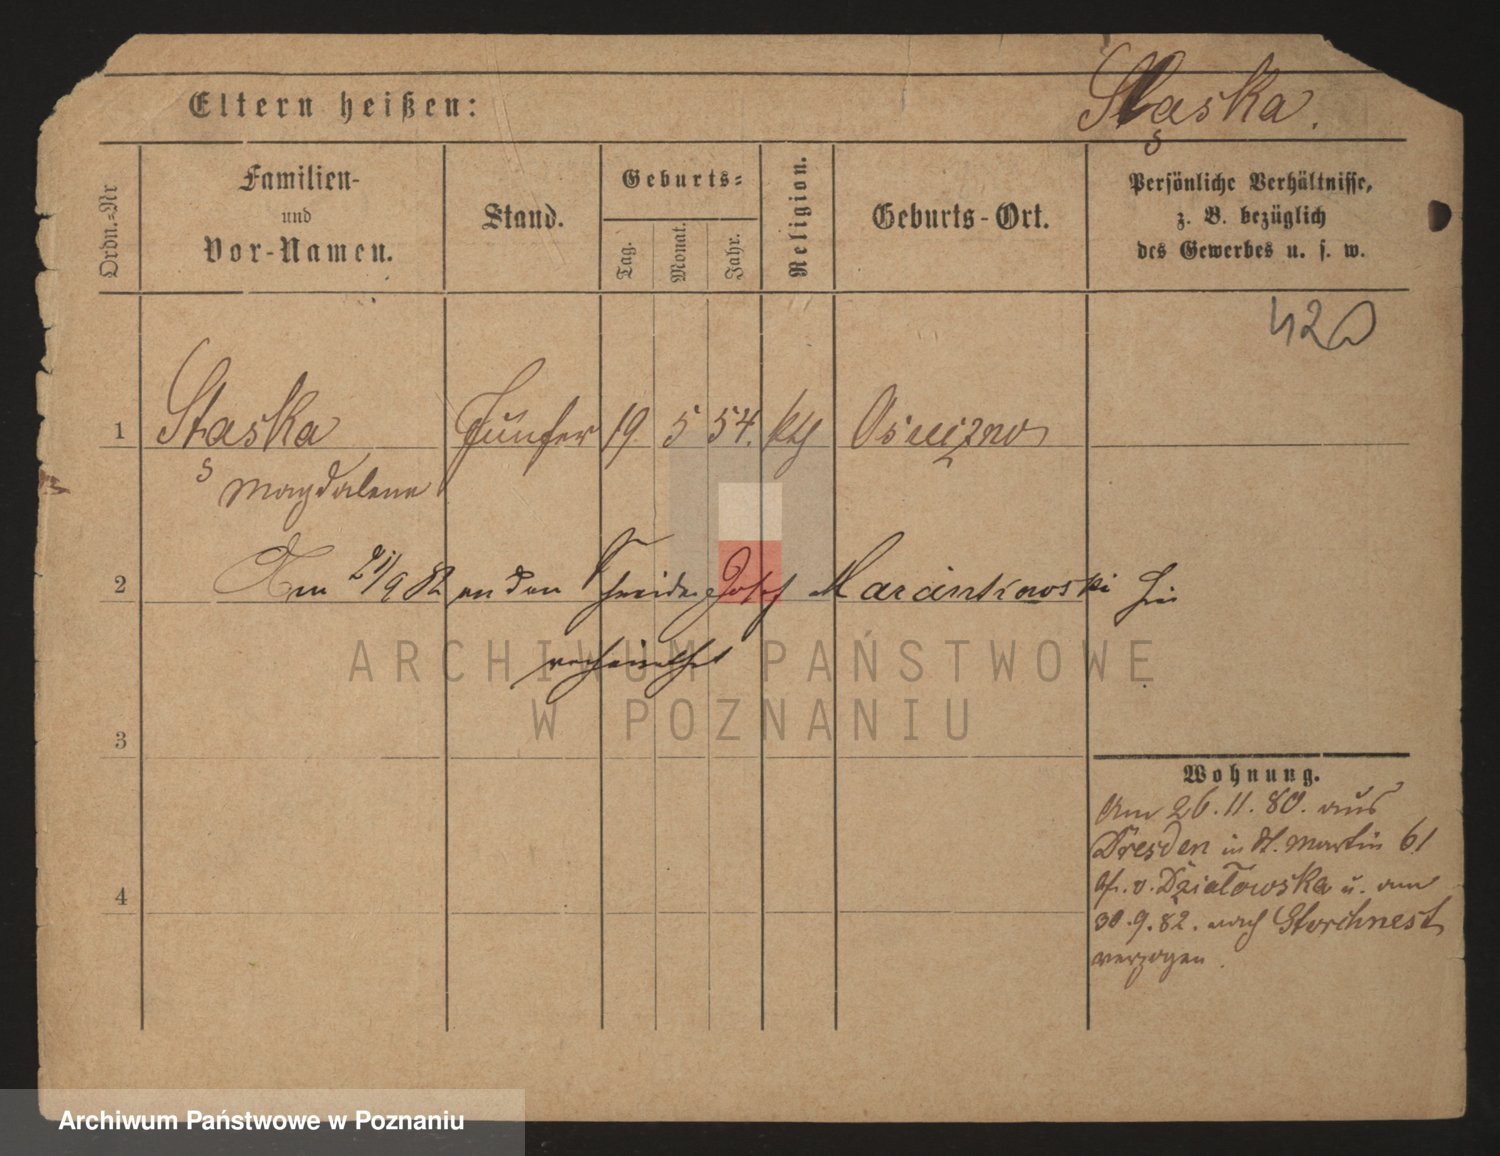 Eltern heißen:
Staska.
Ordn.-Nr
Familien-
und
Vor-Namen.
Stand.
Geburts-
Tag.
Monat.
Jahr.
Religion.
Geburts-Ort.
Persönliche Verhältnisse,
z. B. bezüglich
des Gewerbes u. s. w.
1 Staska Junfer 19. 5 54. kth
Magdalene
2 Am 21/9 82 an den Schneider Josef Marcinkowski hier
verheirathet
3
4
Wohnung.
Am 26. 11. 80. aus
Dresden in St. Martin 61
b/. v. Działowska u. am
30. 9. 82. nach Storchnest
verzogen.
ARCHIWUM PAŃSTWOWE
W POZNANIU
Archiwum Państwowe w Poznaniu